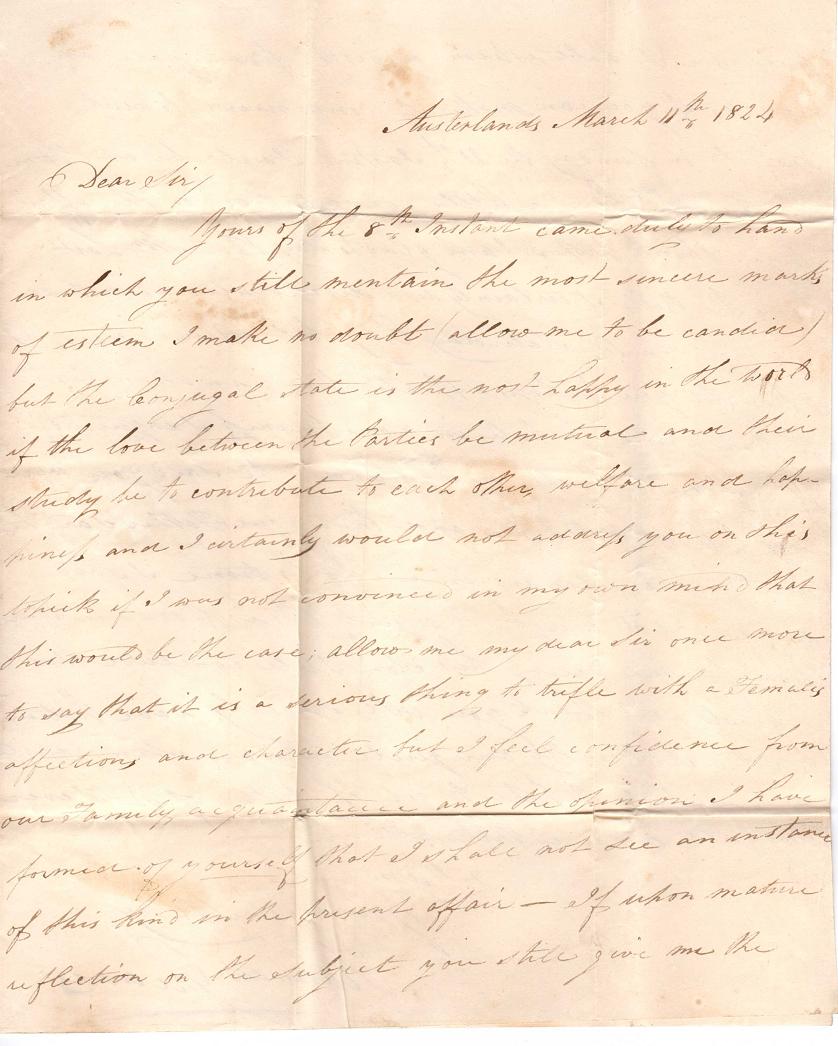 Austerlands March 11th 1824
Dear Sir/
Yours of the 8th Instant came duly to hand
in which you still mentain the most sincere marks
of esteem I make no doubt (allow me to be candid)
but the Conjugal state is the most happy in the world
if the love between the Parties be mutual and their
study be to contribute to each others welfare and hap-
piness and I certainly would not address you on this
topick if I was not convinced in my own mind that
this would be the case; allow me my dear Sir once more
to say that it is a serious thing to trifle with a Females
affections and character but I feel confidence from
our Family acquaintance and the opinion I have
formed of yourself that I shall not see an instance
of this kind in the present affair — If upon mature
reflection on the subject you still give me the